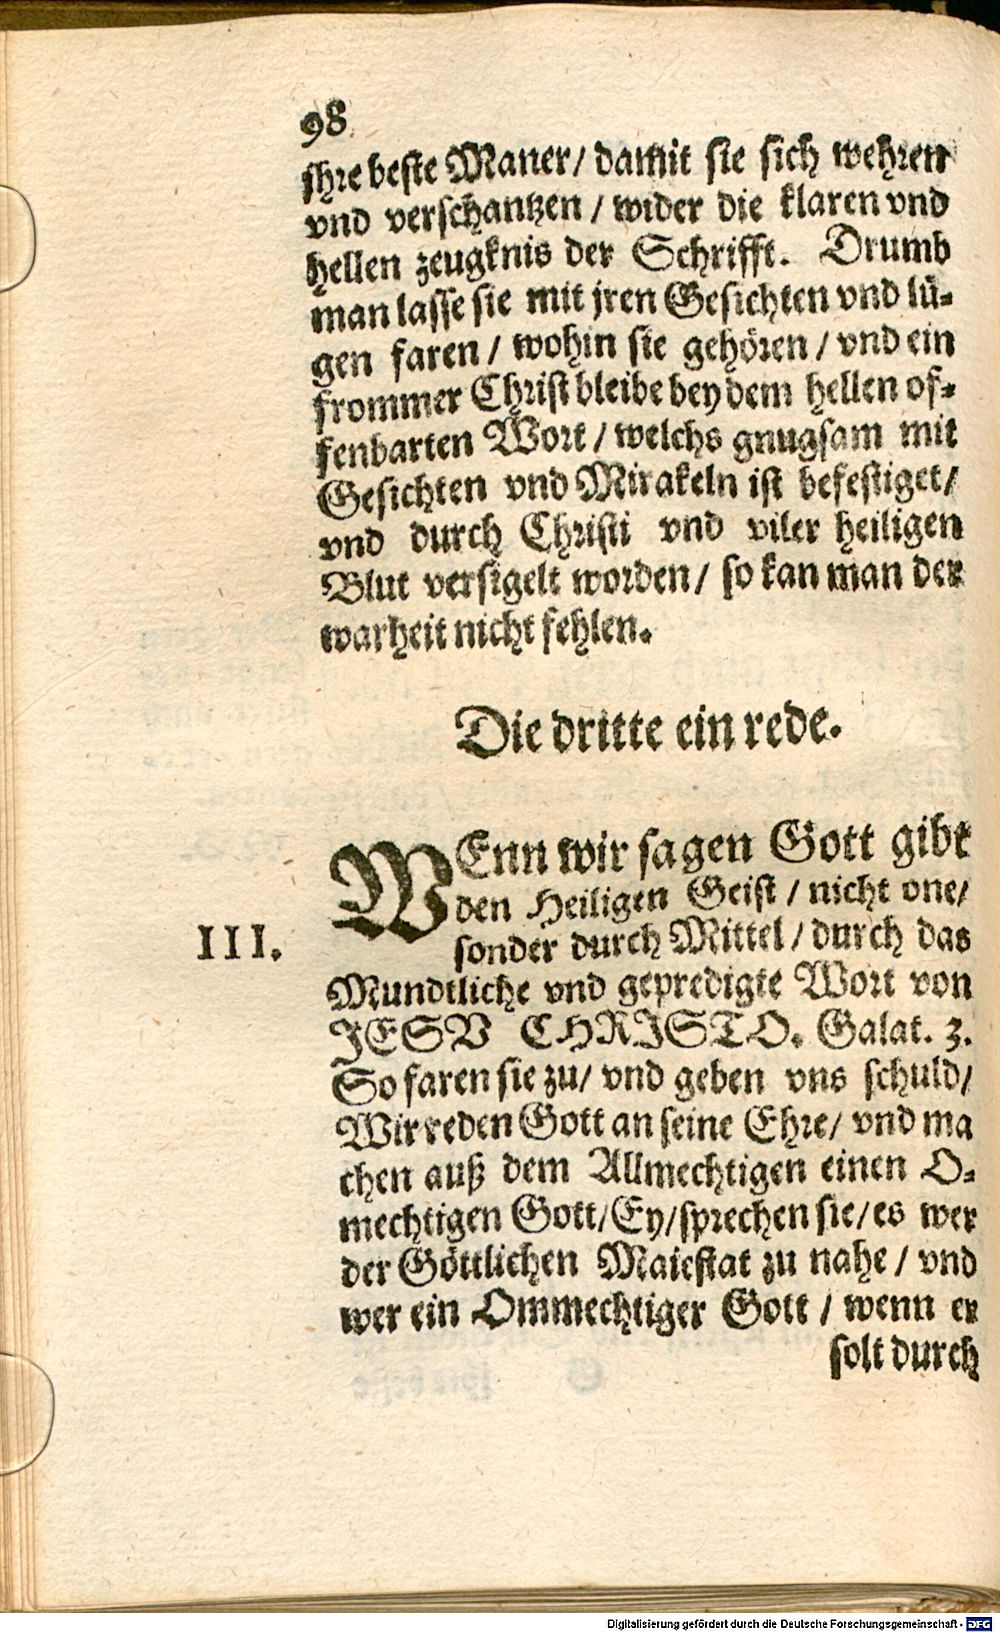 98
jhre beste Maner/ damit sie sich wehren
vnd verschantzen / wider die klaren vnd
hellen zeugknis der Schrifft. Drumb
man lasse sie mit jren Gesichten vnd lü-
gen faren / wohin sie gehören / vnd ein
frommer Christ bleibe bey dem hellen of-
fenbarten Wort / welchs gnugsam mit
Gesichten vnd Mirakeln ist befestiget/
vnd durch Christi vnd viler heiligen
Blut versigelt worden/ so kan man der
warheit nicht fehlen.
Die dritte ein rede.
WEnn wir sagen Gott gibt
den Heiligen Geist / nicht one/
III. sonder durch Mittel / durch das
Mundtliche vnd gepredigte Wort von
JESV CHRISTO. Galat. 3.
So faren sie zu/ vnd geben vns schuld/
Wir reden Gott an seine Ehre/ vnd ma
chen auß dem Allmechtigen einen O-
mechtigen Gott/Ey/sprechen sie/es wer
der Göttlichen Maiestat zu nahe / vnd
wer ein Ommechtiger Gott / wenn er
solt durch
Digitalisierung gefördert durch die Deutsche Forschungsgemeinschaft - DFG